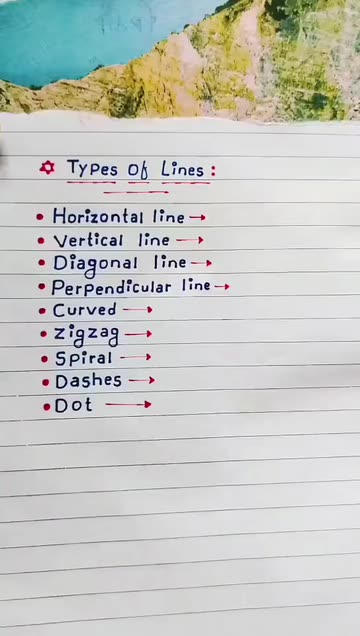 ✡ Types of Lines :
• Horizontal line →
• Vertical line →
• Diagonal line →
• Perpendicular line →
• Curved →
• Zigzag →
• Spiral →
• Dashes →
• Dot →